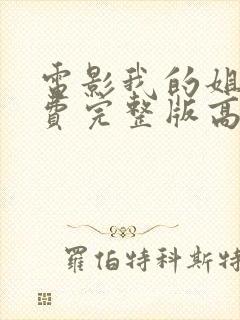 电影我的姐
费完整版高
羅伯特科斯特